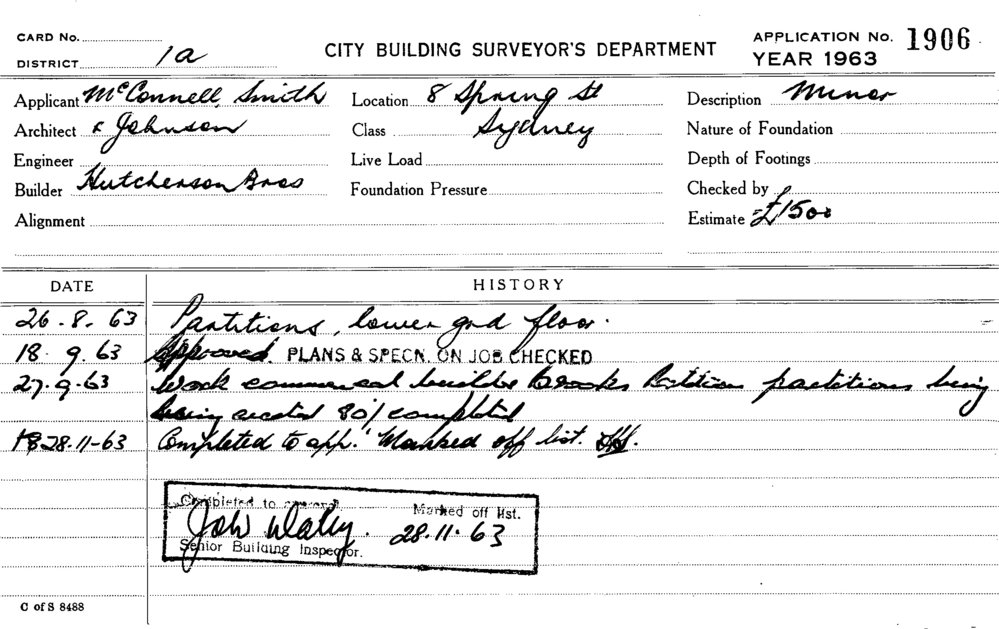 CARD No.
DISTRICT 1a
CITY BUILDING SURVEYOR'S DEPARTMENT
APPLICATION No. 1906
YEAR 1963
Applicant McConnell Smith
Architect & Johnson
Engineer
Builder Hutcherson Bros
Alignment
Location 8 Spring St
Class Sydney
Live Load
Foundation Pressure
Description Minor
Nature of Foundation
Depth of Footings
Checked by
Estimate £1500
DATE HISTORY
26.8.63 Partitions, lower grd floor.
18.9.63 Approved. PLANS & SPECN. ON JOB CHECKED
27.9.63 Work commenced builder Brooks partitions being
being erected 80% completed
28.11-63 Completed to app. Marked off list.
Completed to approval Marked off list.
28.11.63
Senior Building Inspector.
C of S 8488